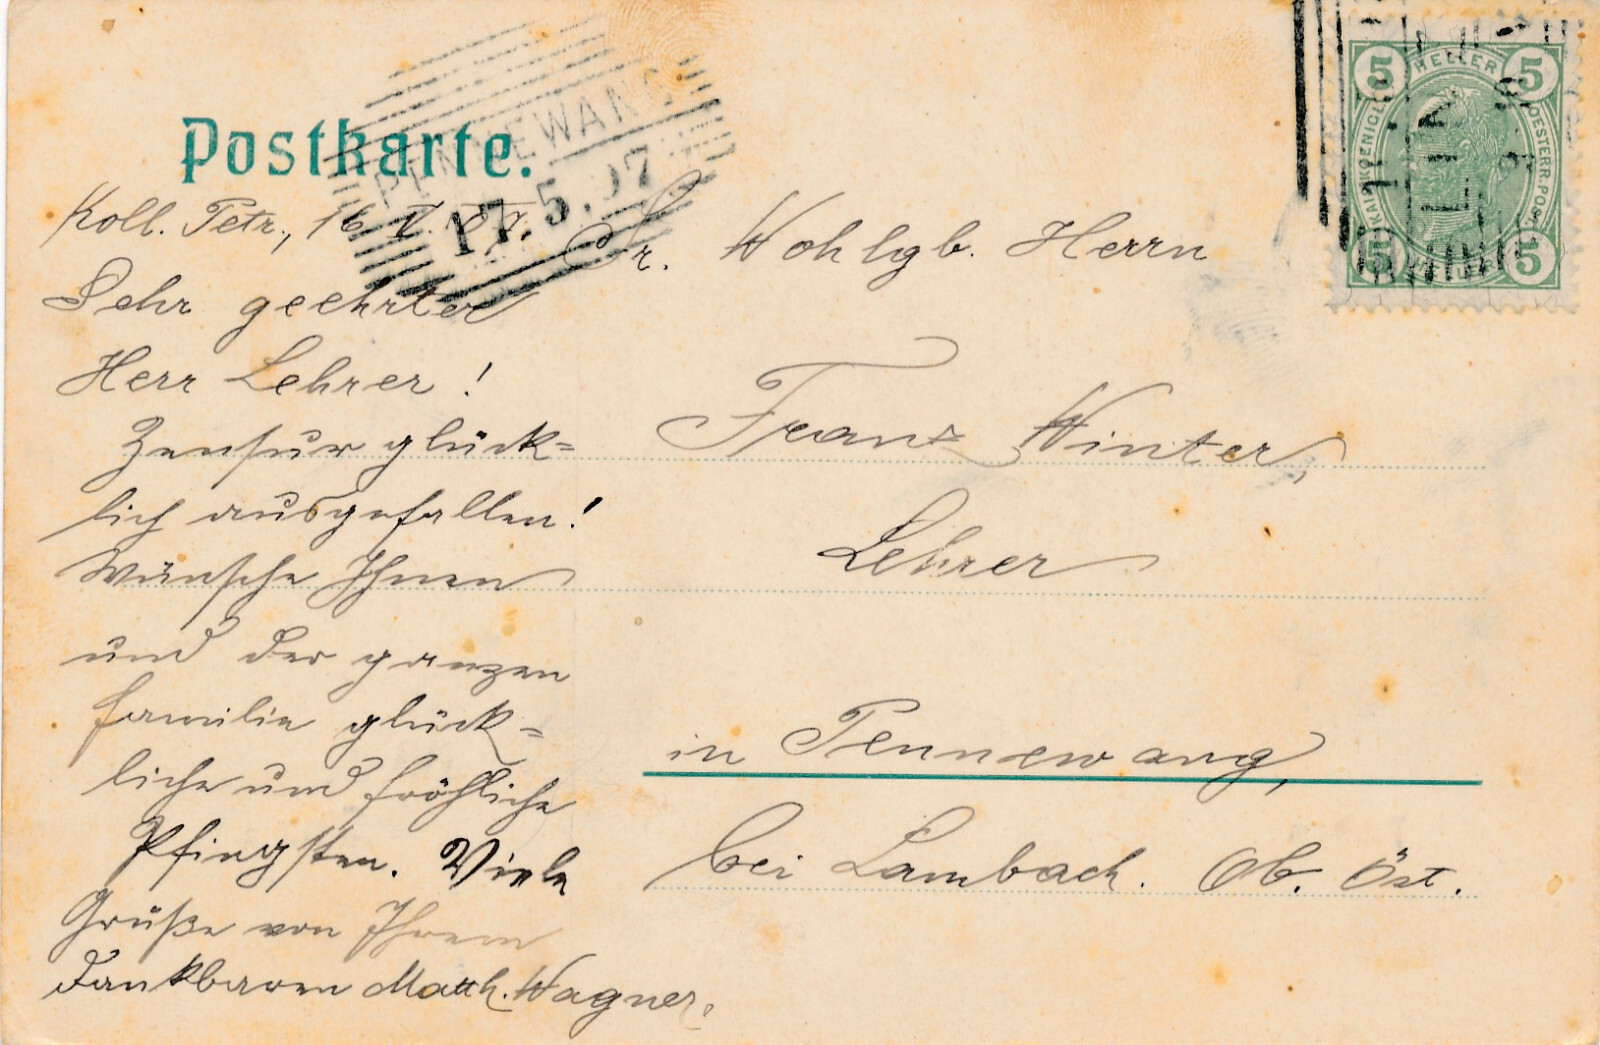 Postkarte.
PENNEWANG
17.5.07
5 HELLER 5
KAIS. KOENIGL. OESTERR. POST
5 5
Koll. Petr., 16. V. 07.
Sehr geehrter
Herr Lehrer!
Zensur glück=
lich ausgefallen!
Wünsche Ihnen
und der ganzen
Familie glück=
liche und fröhliche
Pfingsten. Viele
Grüße von Ihrem
dankbaren Matth. Wagner.
Sr. Wohlgb. Herrn
Franz Winter,
Lehrer
in Pennewang,
bei Lambach. Ob. Öst.